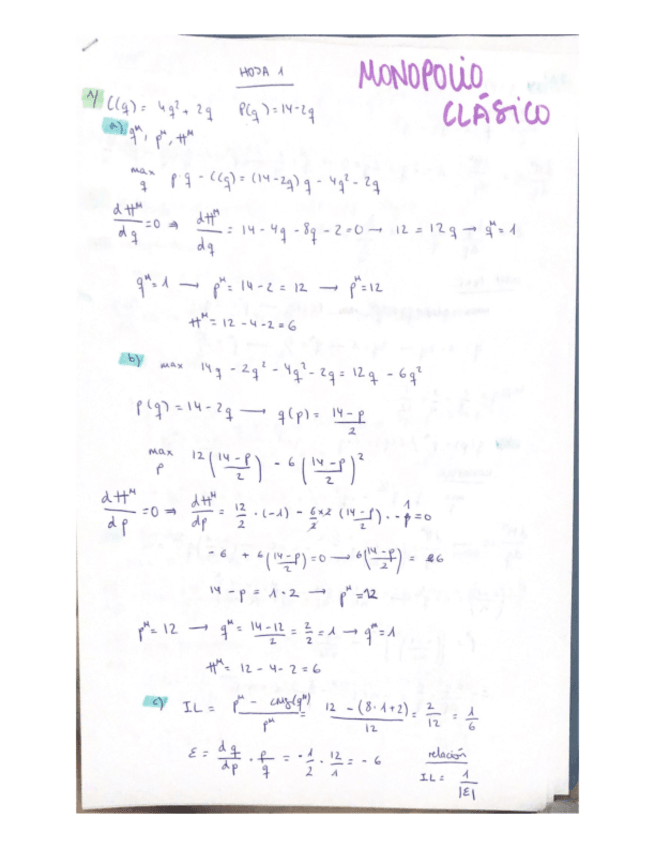 HOJA 1
MONOPOLIO
CLÁSICO
1) C(q) = 4q² + 2q    P(q) = 14-2q
a) qᴹ, pᴹ, πᴹ
max q  p·q - C(q) = (14-2q)q - 4q² - 2q
dπᴹ/dq = 0 ⇒ dπᴹ/dq = 14 - 4q - 8q - 2 = 0 → 12 = 12q → qᴹ = 1
qᴹ = 1 → pᴹ = 14 - 2 = 12 → pᴹ = 12
πᴹ = 12 - 4 - 2 = 6
b) max 14q - 2q² - 4q² - 2q = 12q - 6q²
p(q) = 14 - 2q → q(p) = (14-p)/2
max p  12((14-p)/2) - 6((14-p)/2)²
dπᴹ/dp = 0 ⇒ dπᴹ/dp = 12/2 · (-1) - 6x2/2 ((14-p)/2) · - 1 = 0
- 6 + 6((14-p)/2) = 0 → 6((14-p)/2) = 6
14 - p = 1·2 → pᴹ = 12
pᴹ = 12 → qᴹ = (14-12)/2 = 2/2 = 1 → qᴹ = 1
πᴹ = 12 - 4 - 2 = 6
c) IL = (pᴹ - CMg(qᴹ))/pᴹ = (12 - (8·1+2))/12 = 2/12 = 1/6
ε = dq/dp · p/q = -1/2 · 12/1 = -6
relación
IL = 1/|ε|